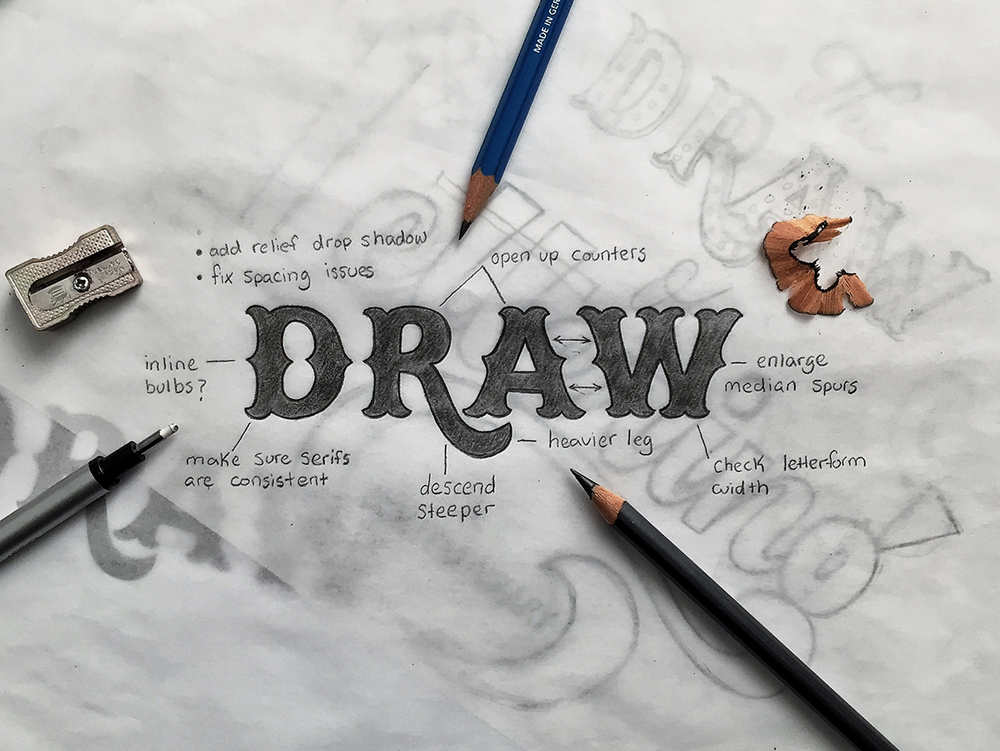 MADE IN GER
• add relief drop shadow
• fix spacing issues
open up counters
DRAW
inline
bulbs?
enlarge
median spurs
heavier leg
make sure serifs
are consistent
descend
steeper
check letterform
width
DRAW